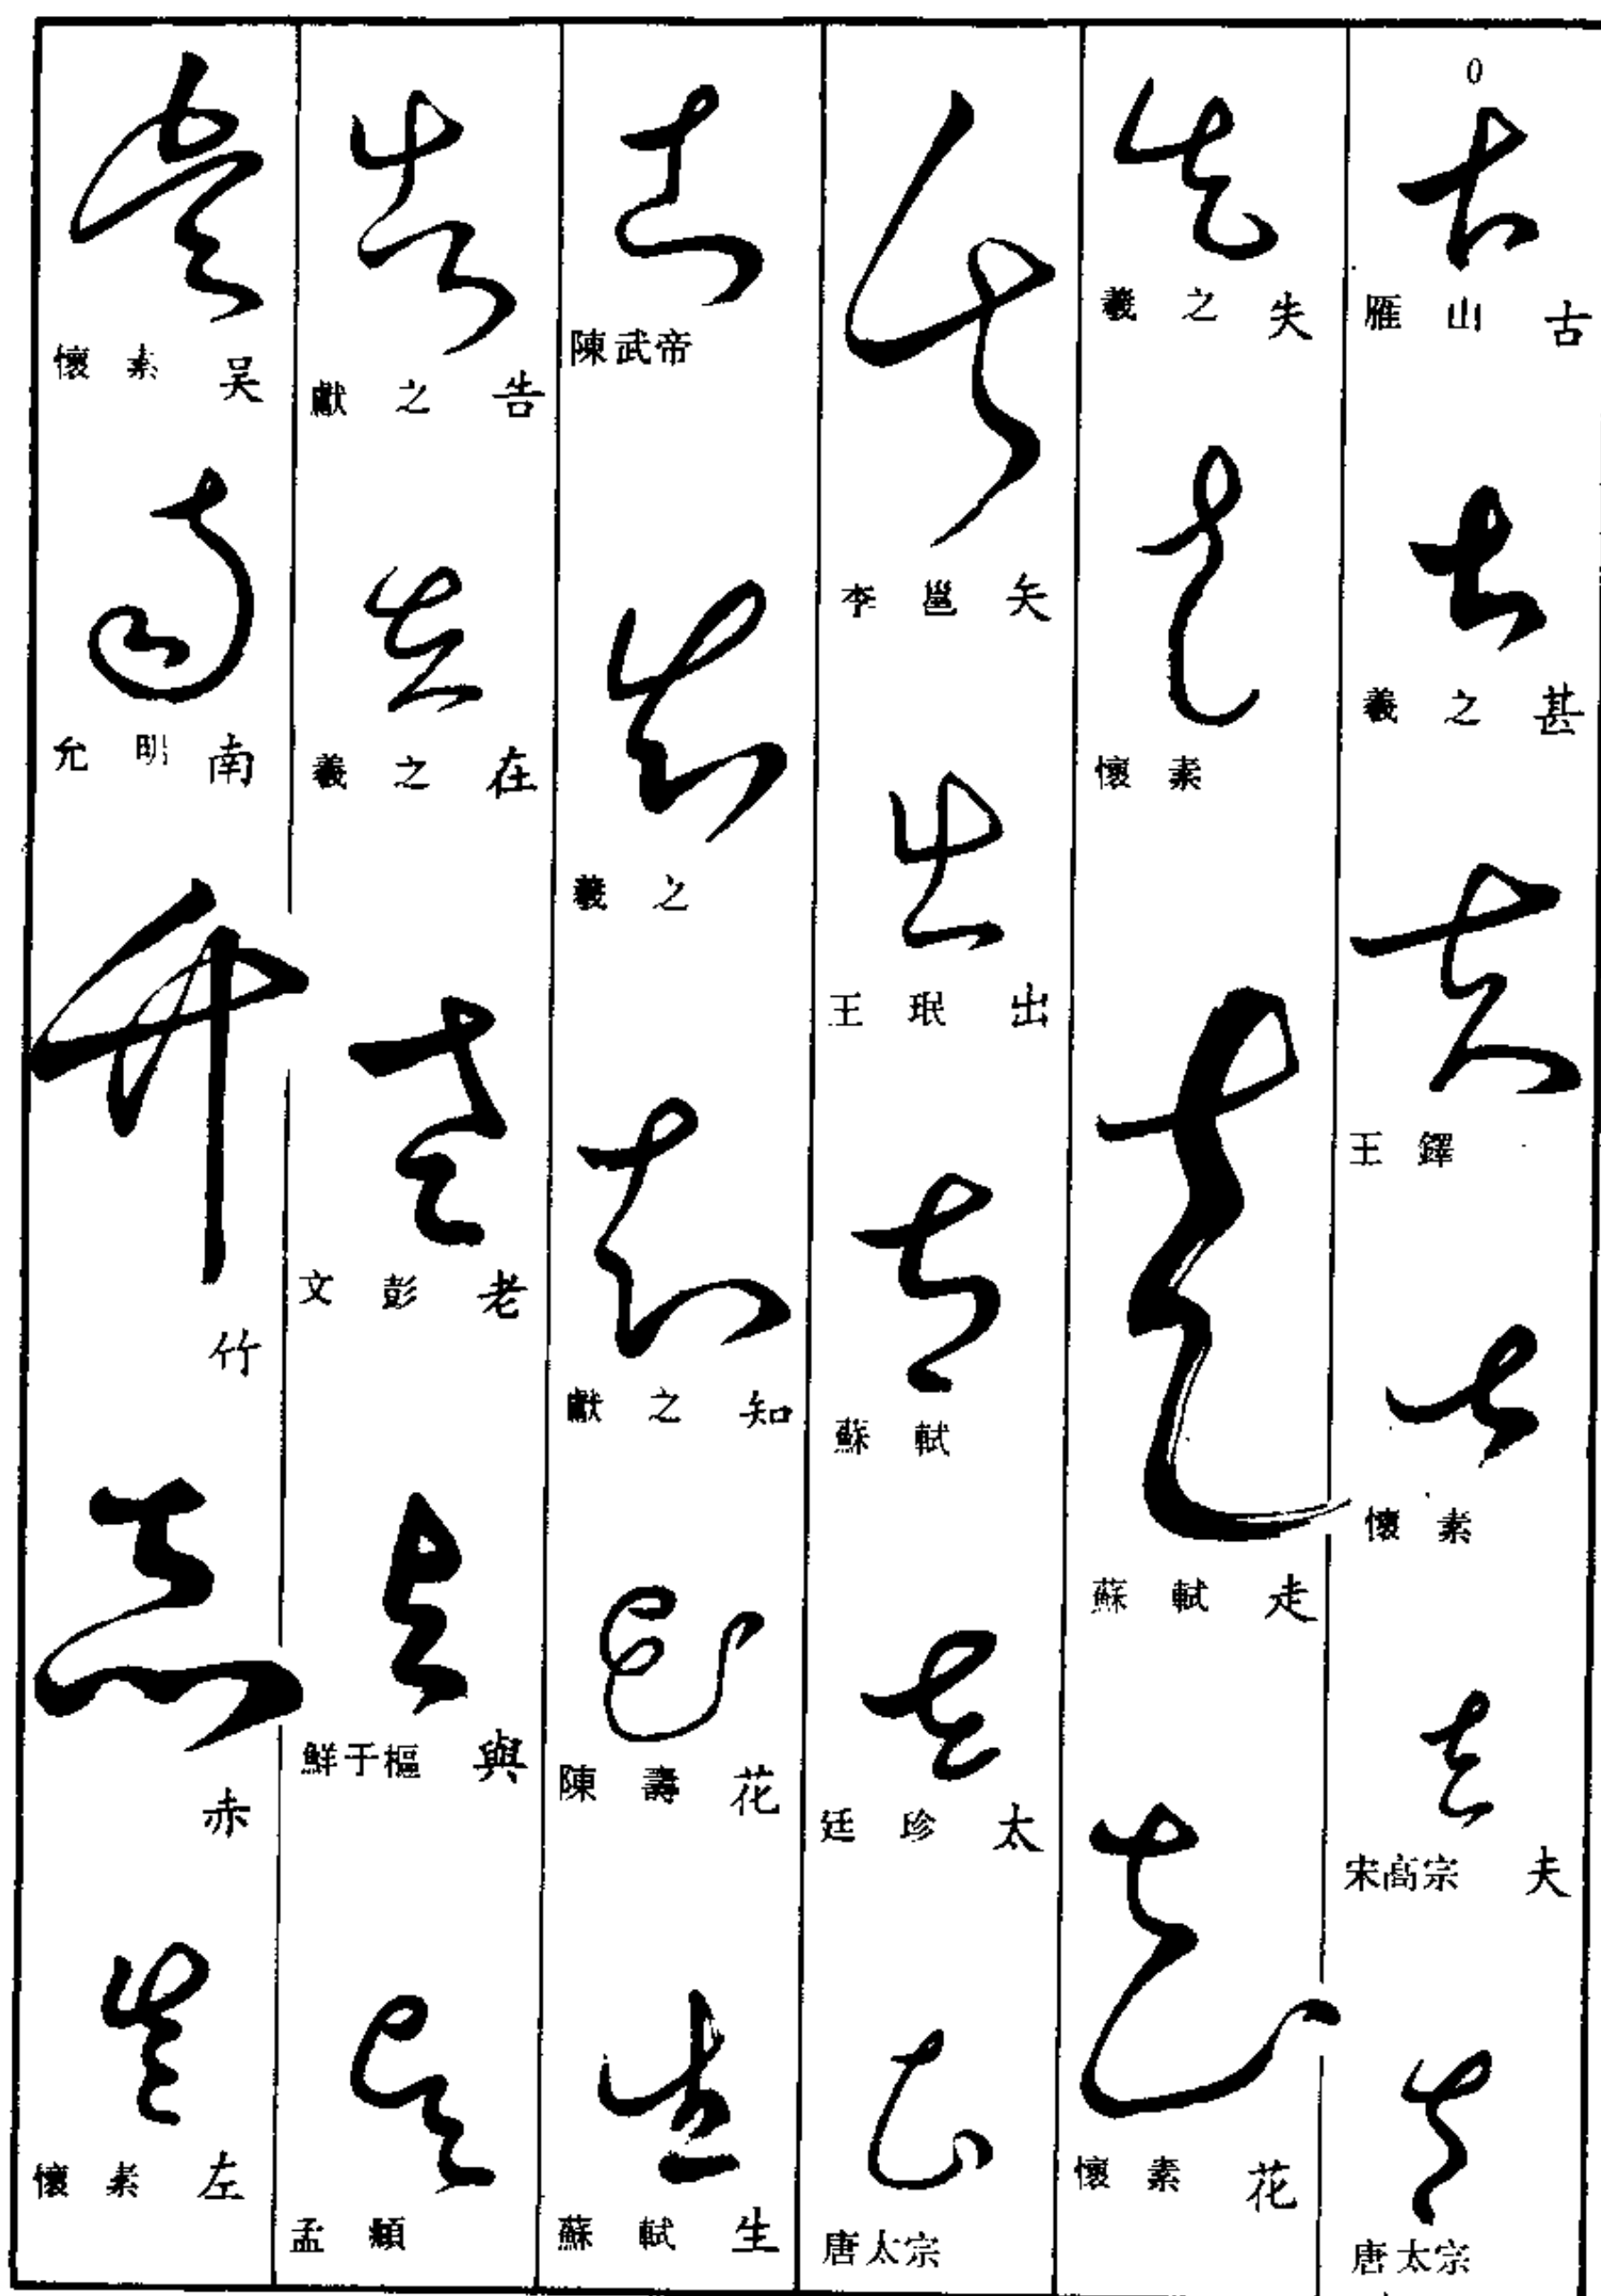 0
雁山 古
羲之 甚
王鐸
懷素
宋高宗 夫
唐太宗
羲之 失
懷素
蘇軾 走
懷素 花
李邕 矢
王珉 出
蘇軾
廷珍 太
唐太宗
陳武帝
羲之
獻之 知
陳壽 花
蘇軾 生
獻之 告
羲之 在
文彭 老
鮮于樞 與
孟頫
懷素 吴
允明 南
竹
赤
懷素 左